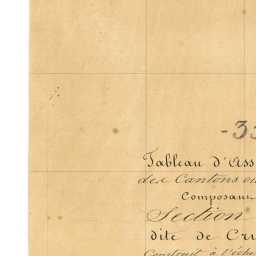 - 33
Tableau d'Ass
des Cantons ou
Composant
Section
dite de Cr
Construit à l'éche